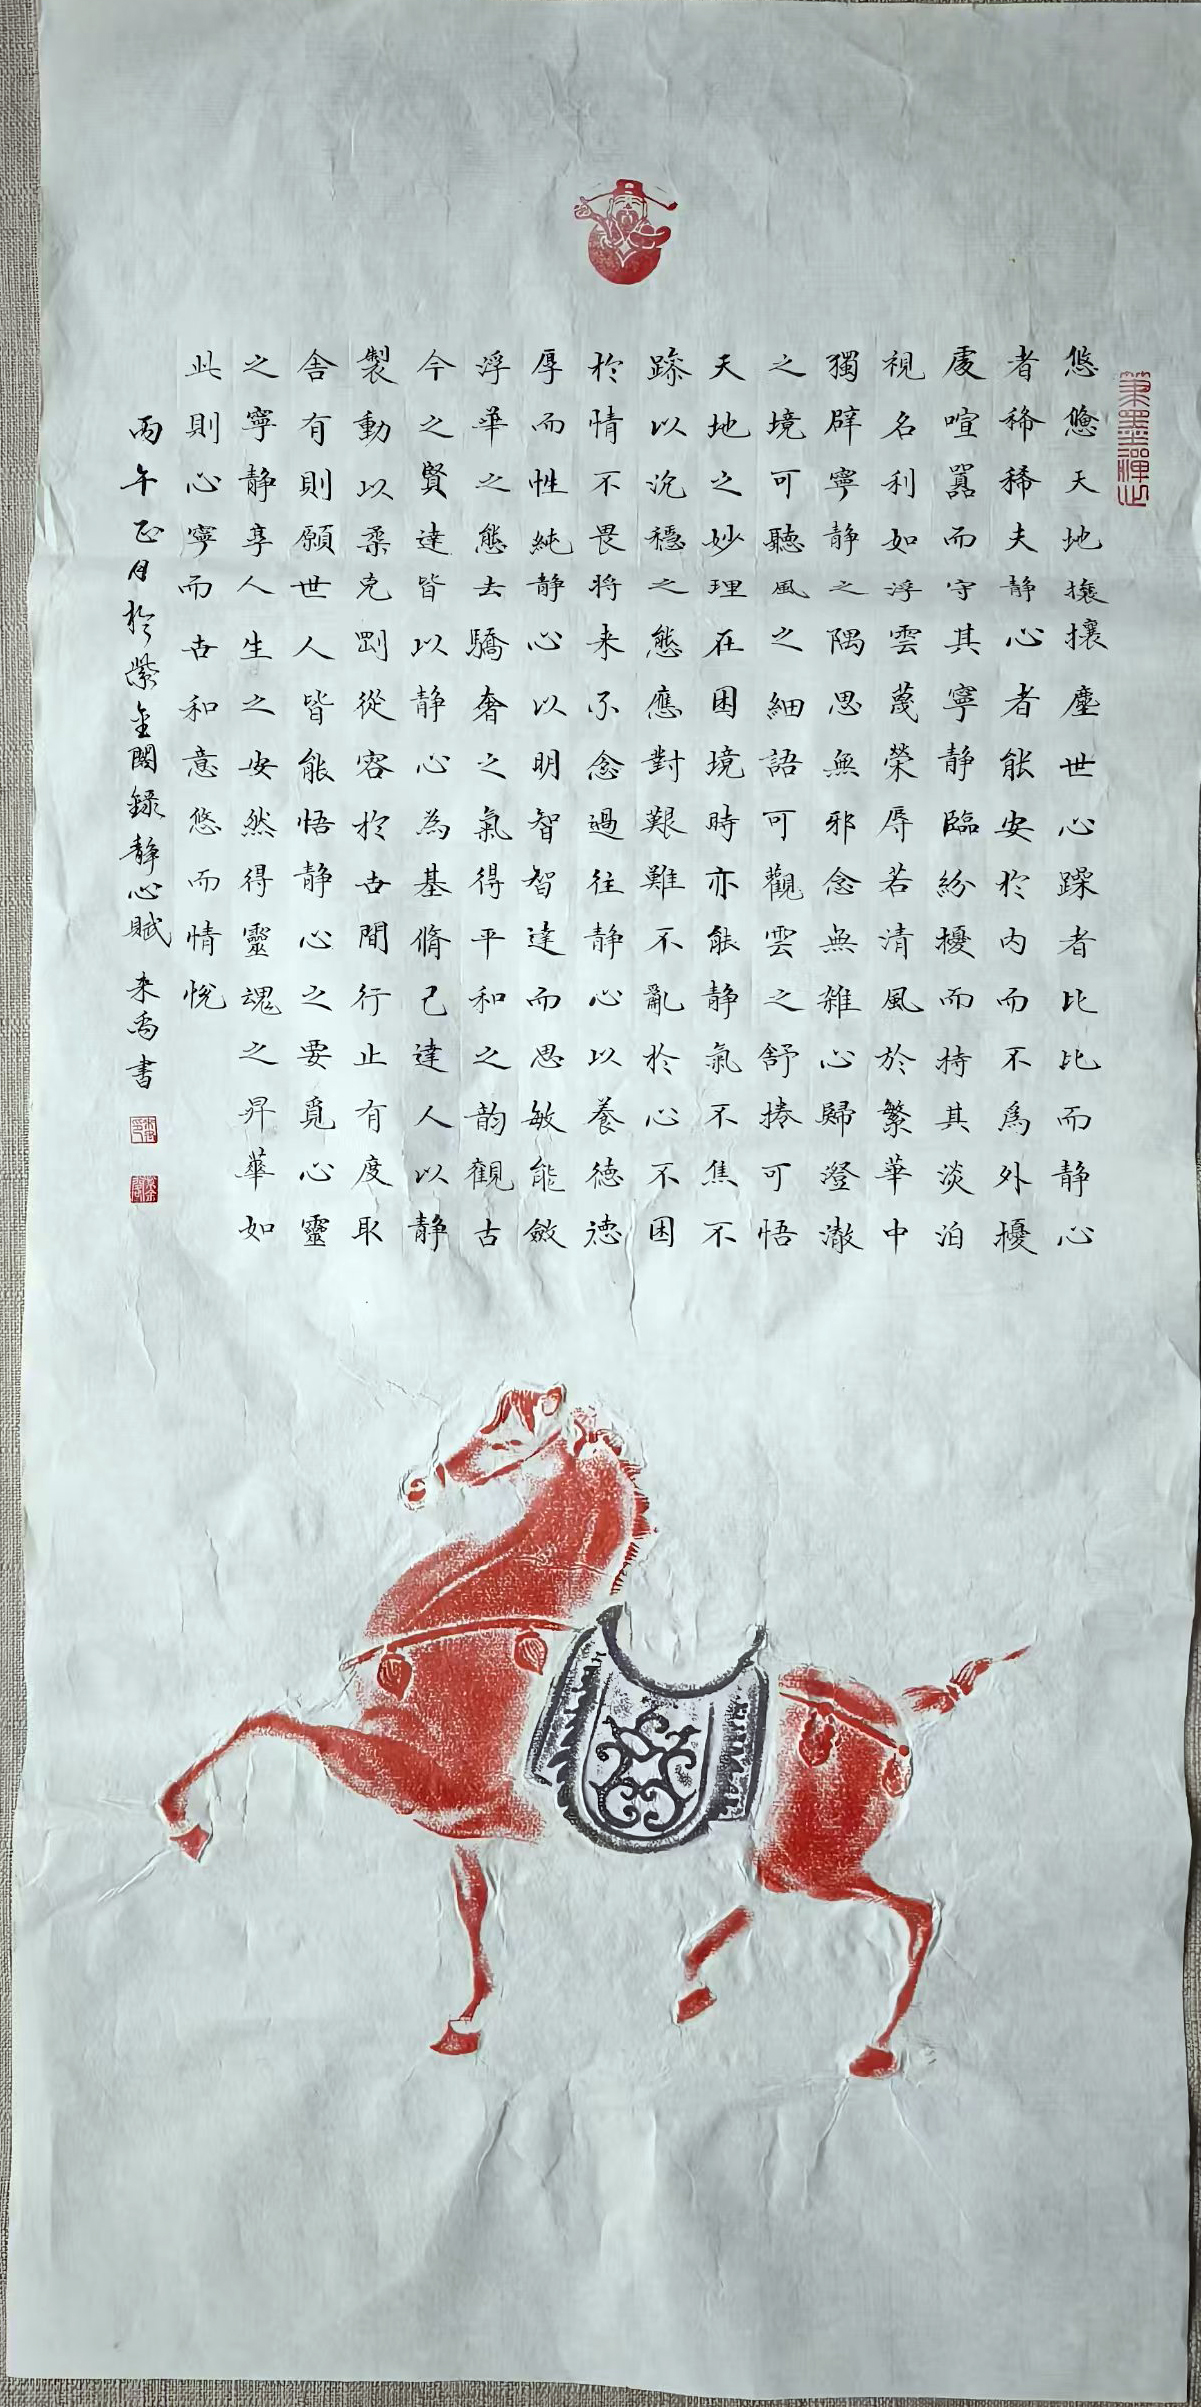 悠悠天地攘攘塵世心躁者比比而静心
者稀稀夫静心者能安於内而不為外擾
處喧囂而守其寧静臨紛擾而持其淡泊
視名利如浮雲蔑榮辱若清風於繁華中
獨辟寧静之隅思無邪念無雜心歸澄澈
之境可聽風之細語可觀雲之舒捲可悟
天地之妙理在困境時亦能静氣不焦不
躁以沉穩之態應對艱難不亂於心不困
於情不畏将来不念過往静心以養德德
厚而性純静心以明智智達而思敏能斂
浮華之態去驕奢之氣得平和之韵觀古
今之賢達皆以静心為基脩己達人以静
製動以柔克剛從容於世間行止有度取
舍有則願世人皆能悟静心之要覓心靈
之寧静享人生之安然得靈魂之昇華如
此則心寧而世和意悠而情悦
丙午正月於紫金閣録静心賦 来禹書